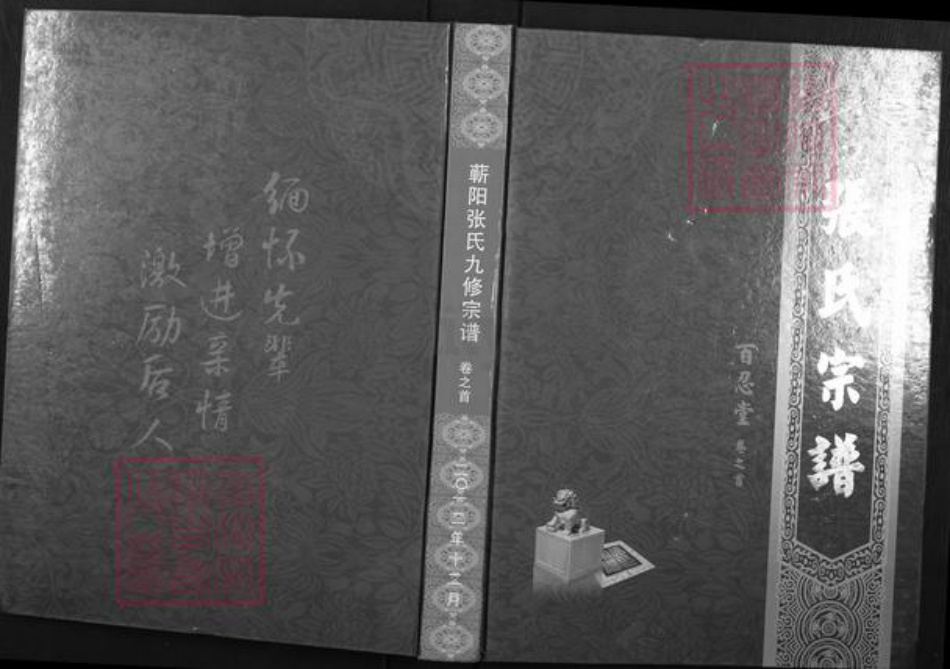 張氏宗譜
百忍堂 卷之首
蕲阳张氏九修宗谱 卷之首
二〇一三年十二月
缅怀先辈
增进亲情
激励后人